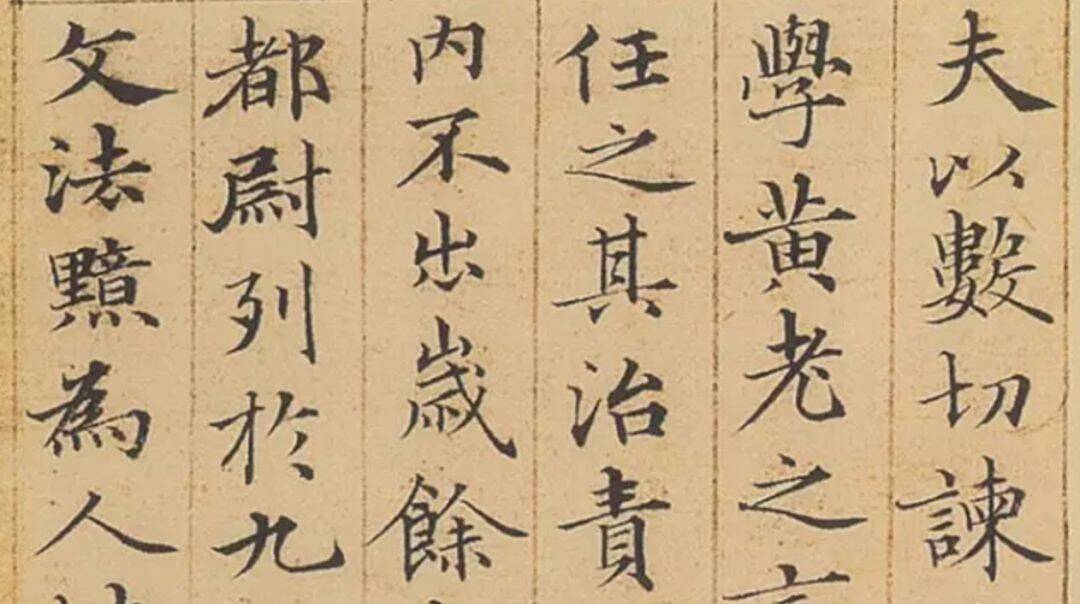 夫以數切諫
學黄老之言
任之其治責
内不出歲餘
都尉列於九
文法黯為人